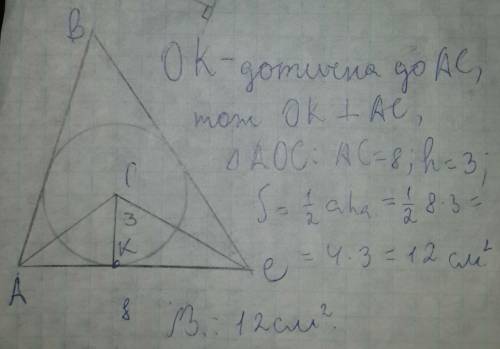 B
OK - дотична до AC,
тому OK ⊥ AC,
△AOC: AC=8; h=3;
S = 1/2 aha = 1/2 8·3 =
= 4·3 = 12 см²
3
K
A
C
8
В.: 12см².